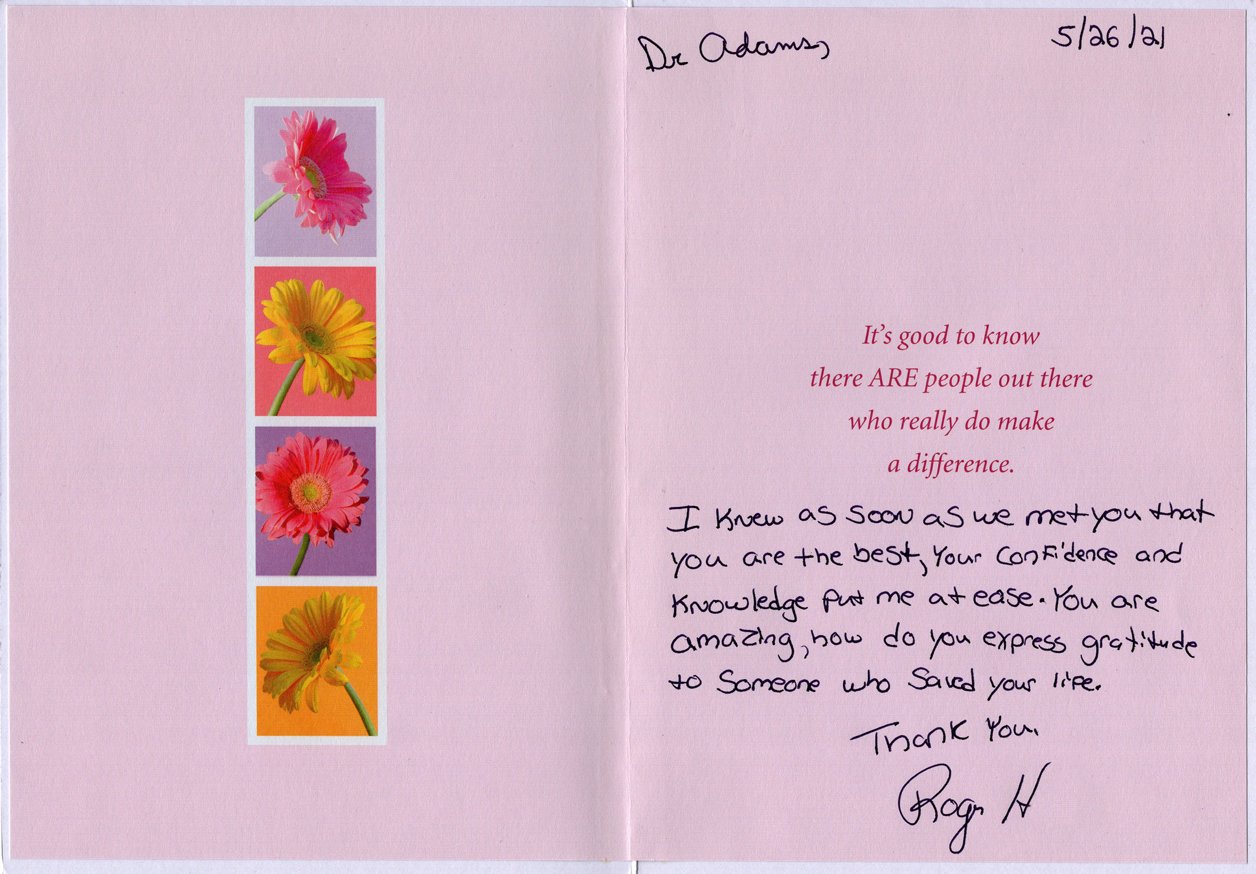 Dr Adams, 5/26/21
It's good to know
there ARE people out there
who really do make
a difference.
I knew as soon as we met you that
you are the best, Your confidence and
Knowledge put me at ease. You are
amazing, how do you express gratitude
to someone who saved your life.
Thank You.
Roger H